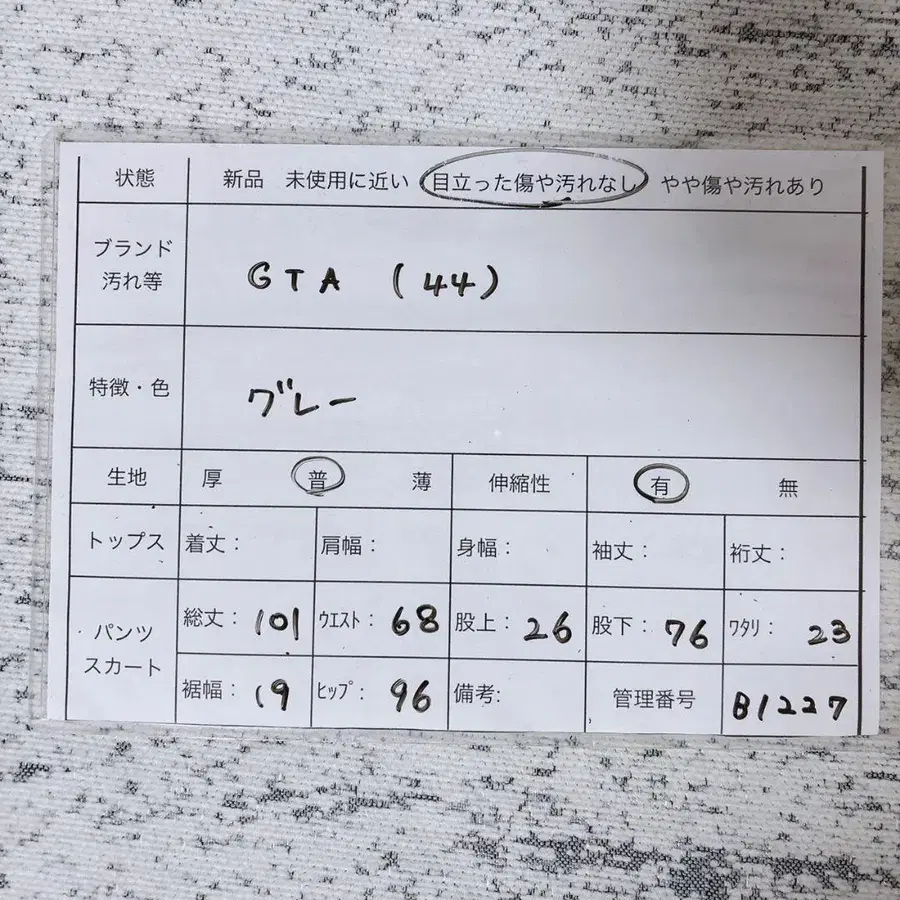 状態 新品 未使用に近い 目立った傷や汚れなし やや傷や汚れあり
ブランド
汚れ等 GTA (44)
特徴・色 グレー
生地 厚 普 薄 伸縮性 有 無
トップス 着丈: 肩幅: 身幅: 袖丈: 裄丈:
パンツ
スカート
総丈: 101 ウエスト: 68 股上: 26 股下: 76 ワタリ: 23
裾幅: 19 ヒップ: 96 備考: 管理番号 B1227